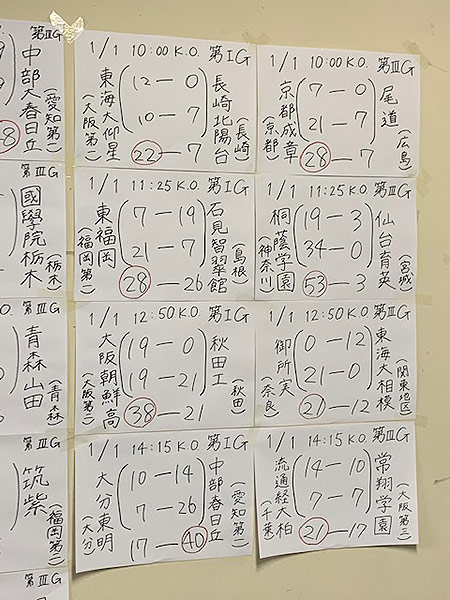 第ⅢG
中部大春日立
(愛知第一)
第ⅢG
國學院栃木
(栃木)
第ⅢG
青森山田
(青森)
第ⅢG
筑紫
(福岡第二)
第ⅢG
1/1 10:00 K.O. 第ⅠG
東海大仰星
(大阪第一)
12—0
10—7
22—7
長崎北陽台
(長崎)
1/1 11:25 K.O. 第ⅠG
東福岡
(福岡第一)
7—19
21—7
28—26
石見智翠館
(島根)
1/1 12:50 K.O. 第ⅠG
大阪朝鮮高
(大阪第二)
19—0
19—21
38—21
秋田工
(秋田)
1/1 14:15 K.O. 第ⅠG
大分東明
(大分)
10—14
7—26
17—40
中部春日立
(愛知第一)
1/1 10:00 K.O. 第ⅢG
京都成章
(京都)
7—0
21—7
28—7
尾道
(広島)
1/1 11:25 K.O. 第ⅢG
桐蔭学園
(神奈川)
19—3
34—0
53—3
仙台育英
(宮城)
1/1 12:50 K.O. 第ⅢG
御所実
(奈良)
0—12
21—0
21—12
東海大相模
(関東地区)
1/1 14:15 K.O. 第ⅢG
流通経大柏
(千葉)
14—10
7—7
21—17
常翔学園
(大阪第三)